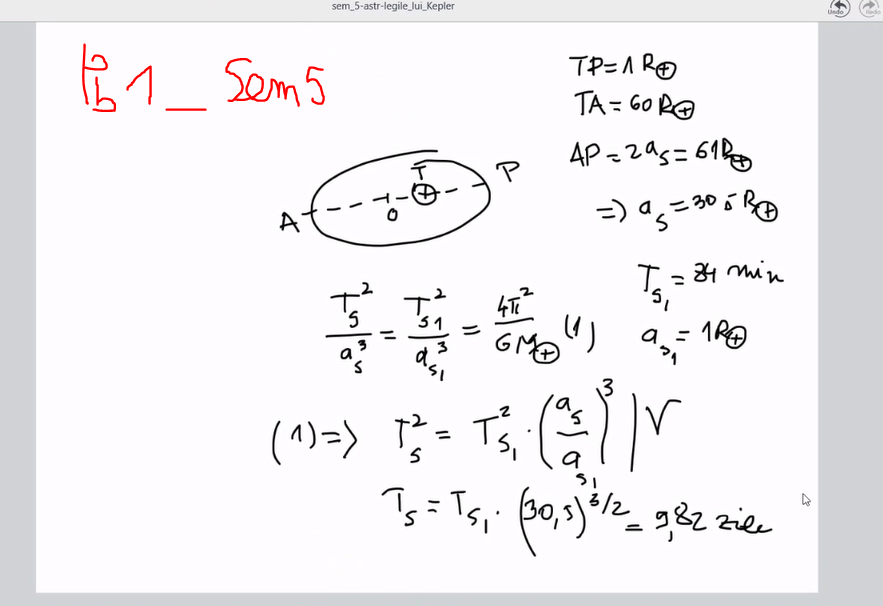 sem_5-astr-legile_lui_Kepler
Undo
Redo
Pb 1 _ Sem 5
TP = 1 R⊕
TA = 60 R⊕
AP = 2a_s = 61 R⊕
=> a_s = 30,5 R⊕
T
P
O
A
T_{s_1} = 84 min
a_{s_1} = 1R⊕
T_s^2 / a_s^3 = T_{s1}^2 / a_{s_1}^3 = 4π^2 / GM⊕ (1)
(1) => T_s^2 = T_{s_1}^2 · (a_s / a_{s_1})^3 | √
T_s = T_{s_1} · (30,5)^{3/2} = 9,82 zile